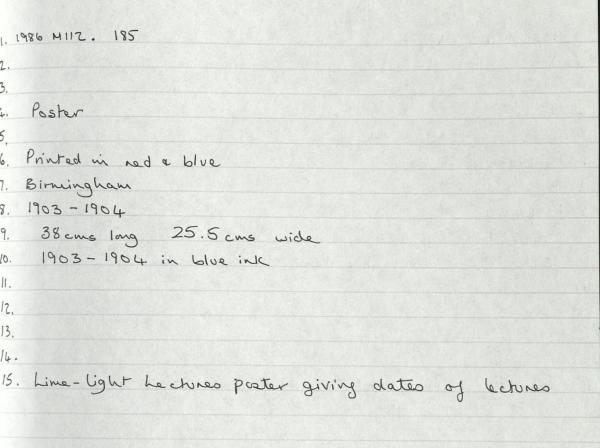 1. 1986 M112. 185
2.
3.
4. Poster
5.
6. Printed in red & blue
7. Birmingham
8. 1903 - 1904
9. 38cms long 25.5cms wide
10. 1903 - 1904 in blue ink
11.
12.
13.
14.
15. Lime-light Lectures poster giving dates of lectures